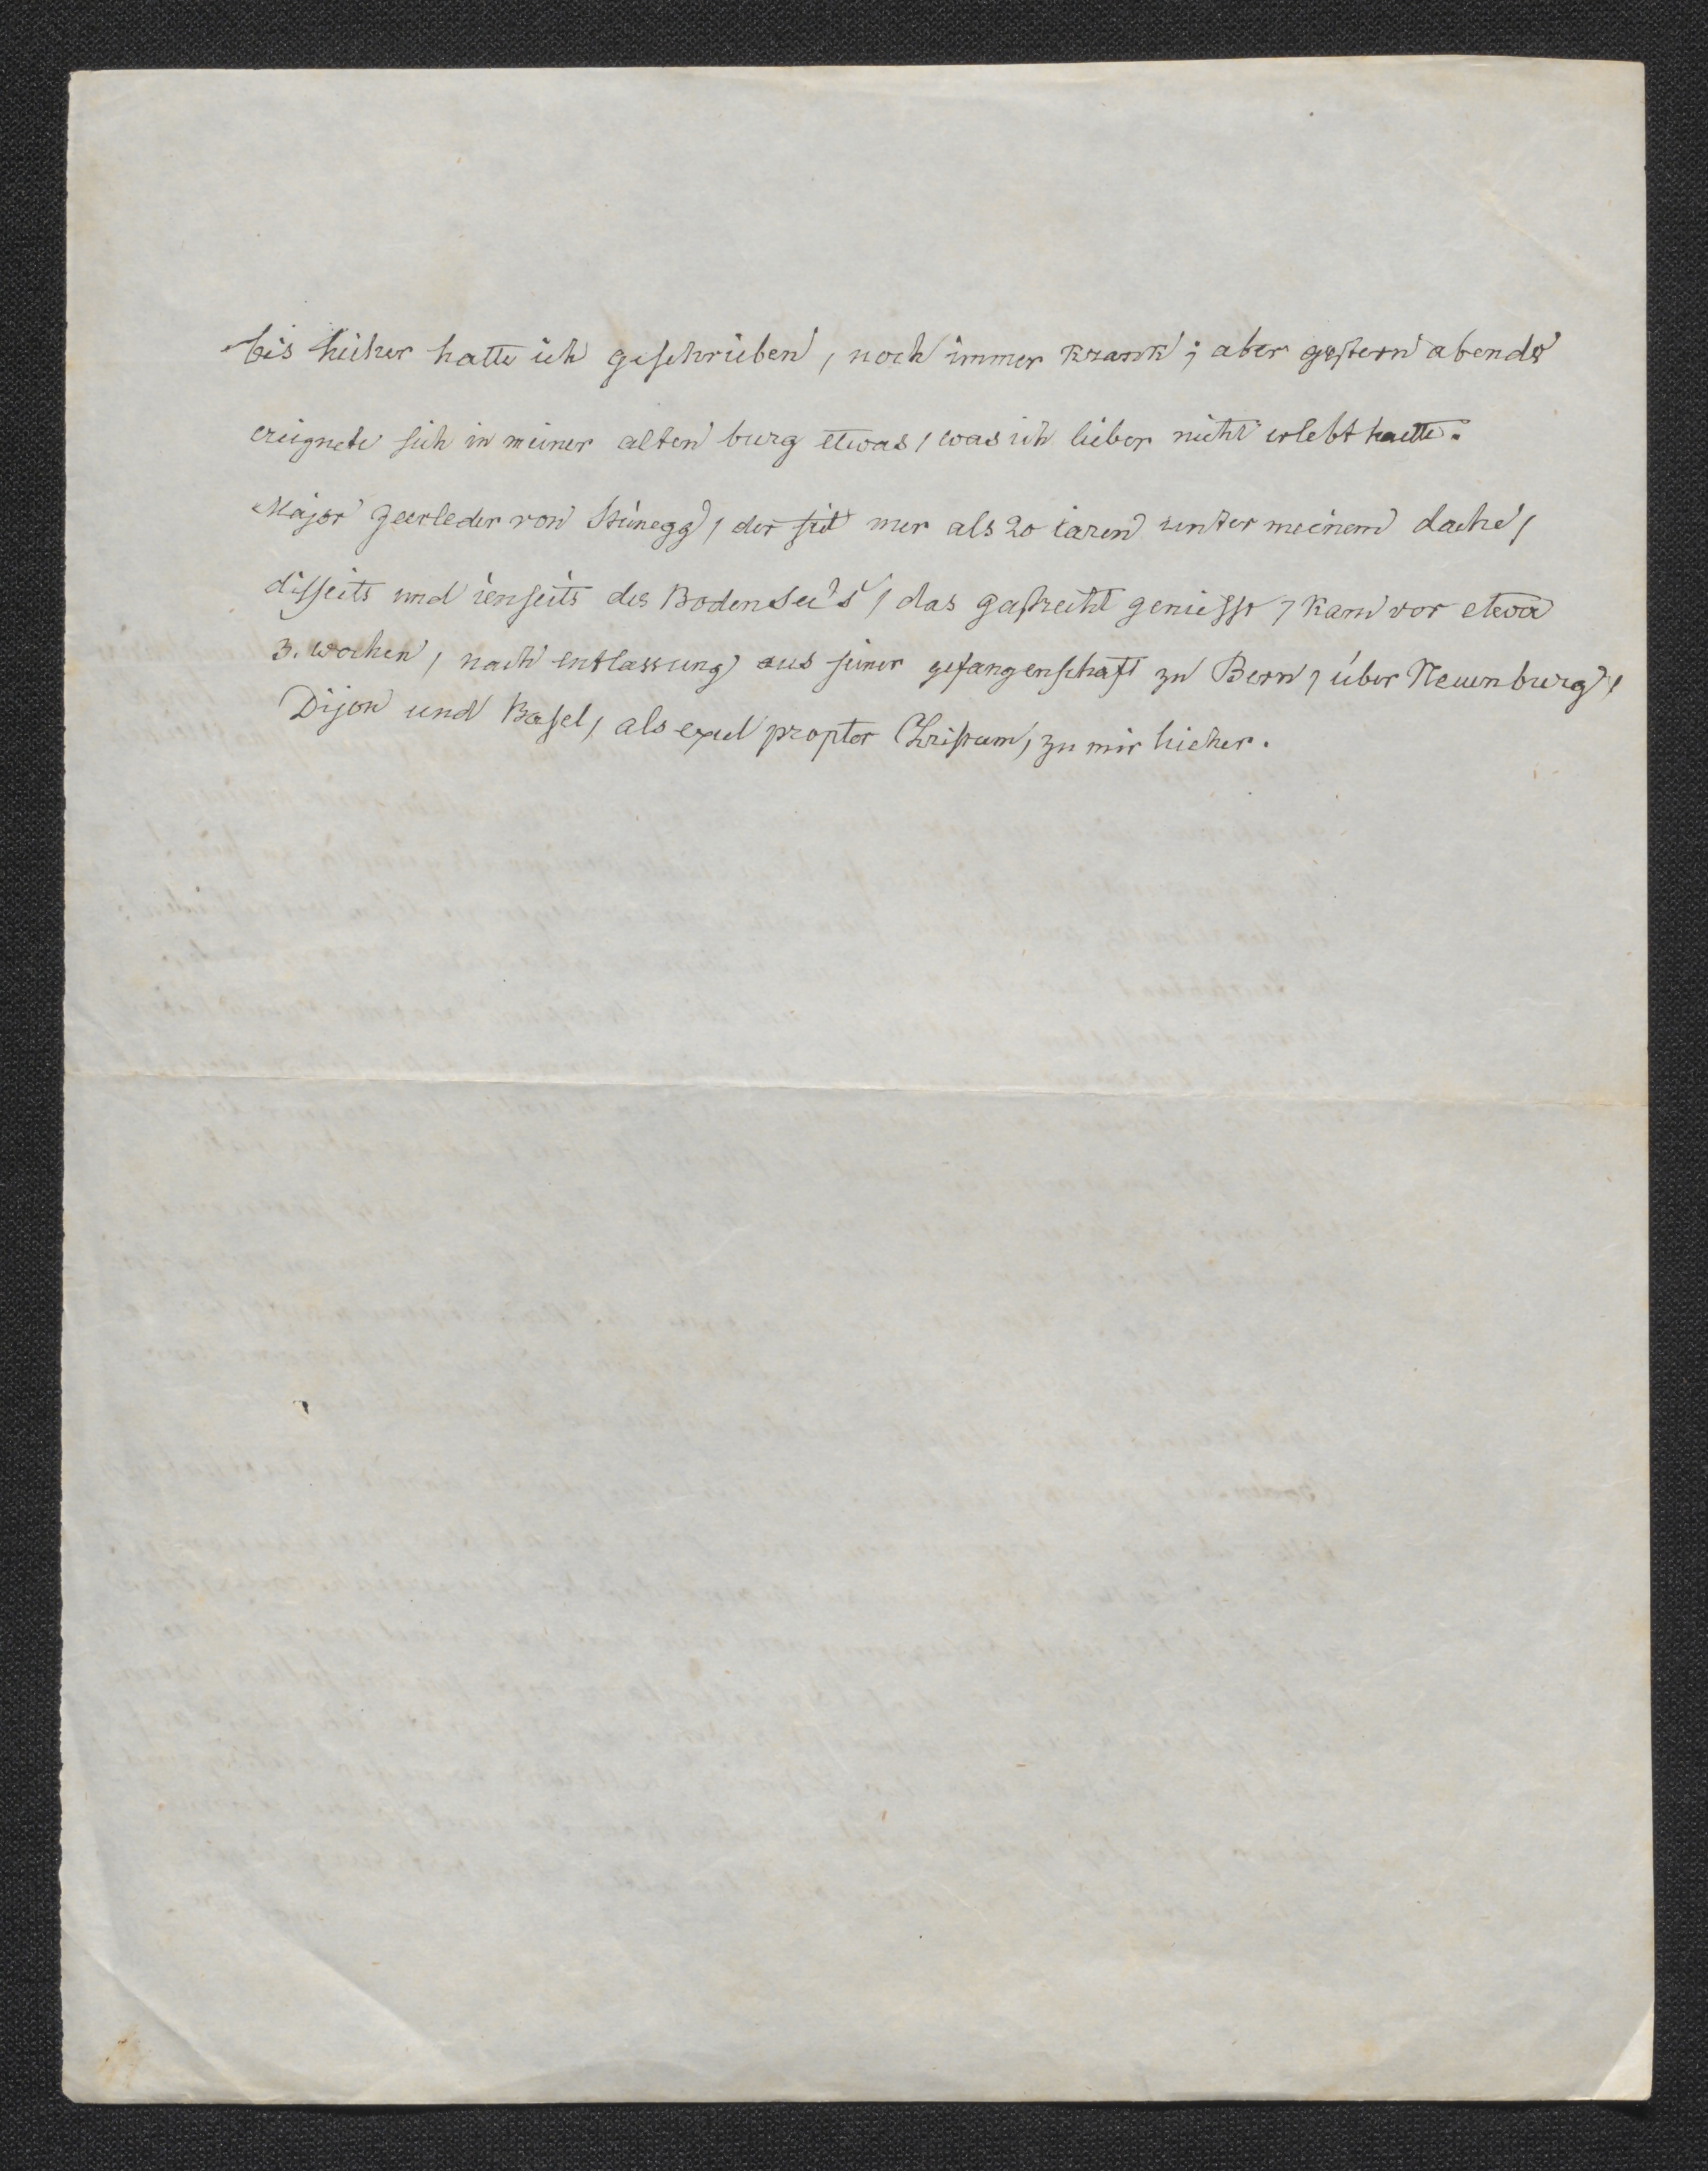 bis hieher hatte ich geschrieben, noch immer krank; aber gestern abends
ereignete sich in meiner alten burg etwas, was ich lieber nicht erlebt haette.
Major Zeerleder von Steinegg, der seit mer als 20 iaren unter meinem dache,
disseits und ienseits des Bodensee's, das gastrecht geniesst, kam vor etwa
3. wochen, nach entlassung aus seiner gefangenschaft zu Bern, über Neuenburg,
Dijon und Basel, als exul propter Christum, zu mir hieher.